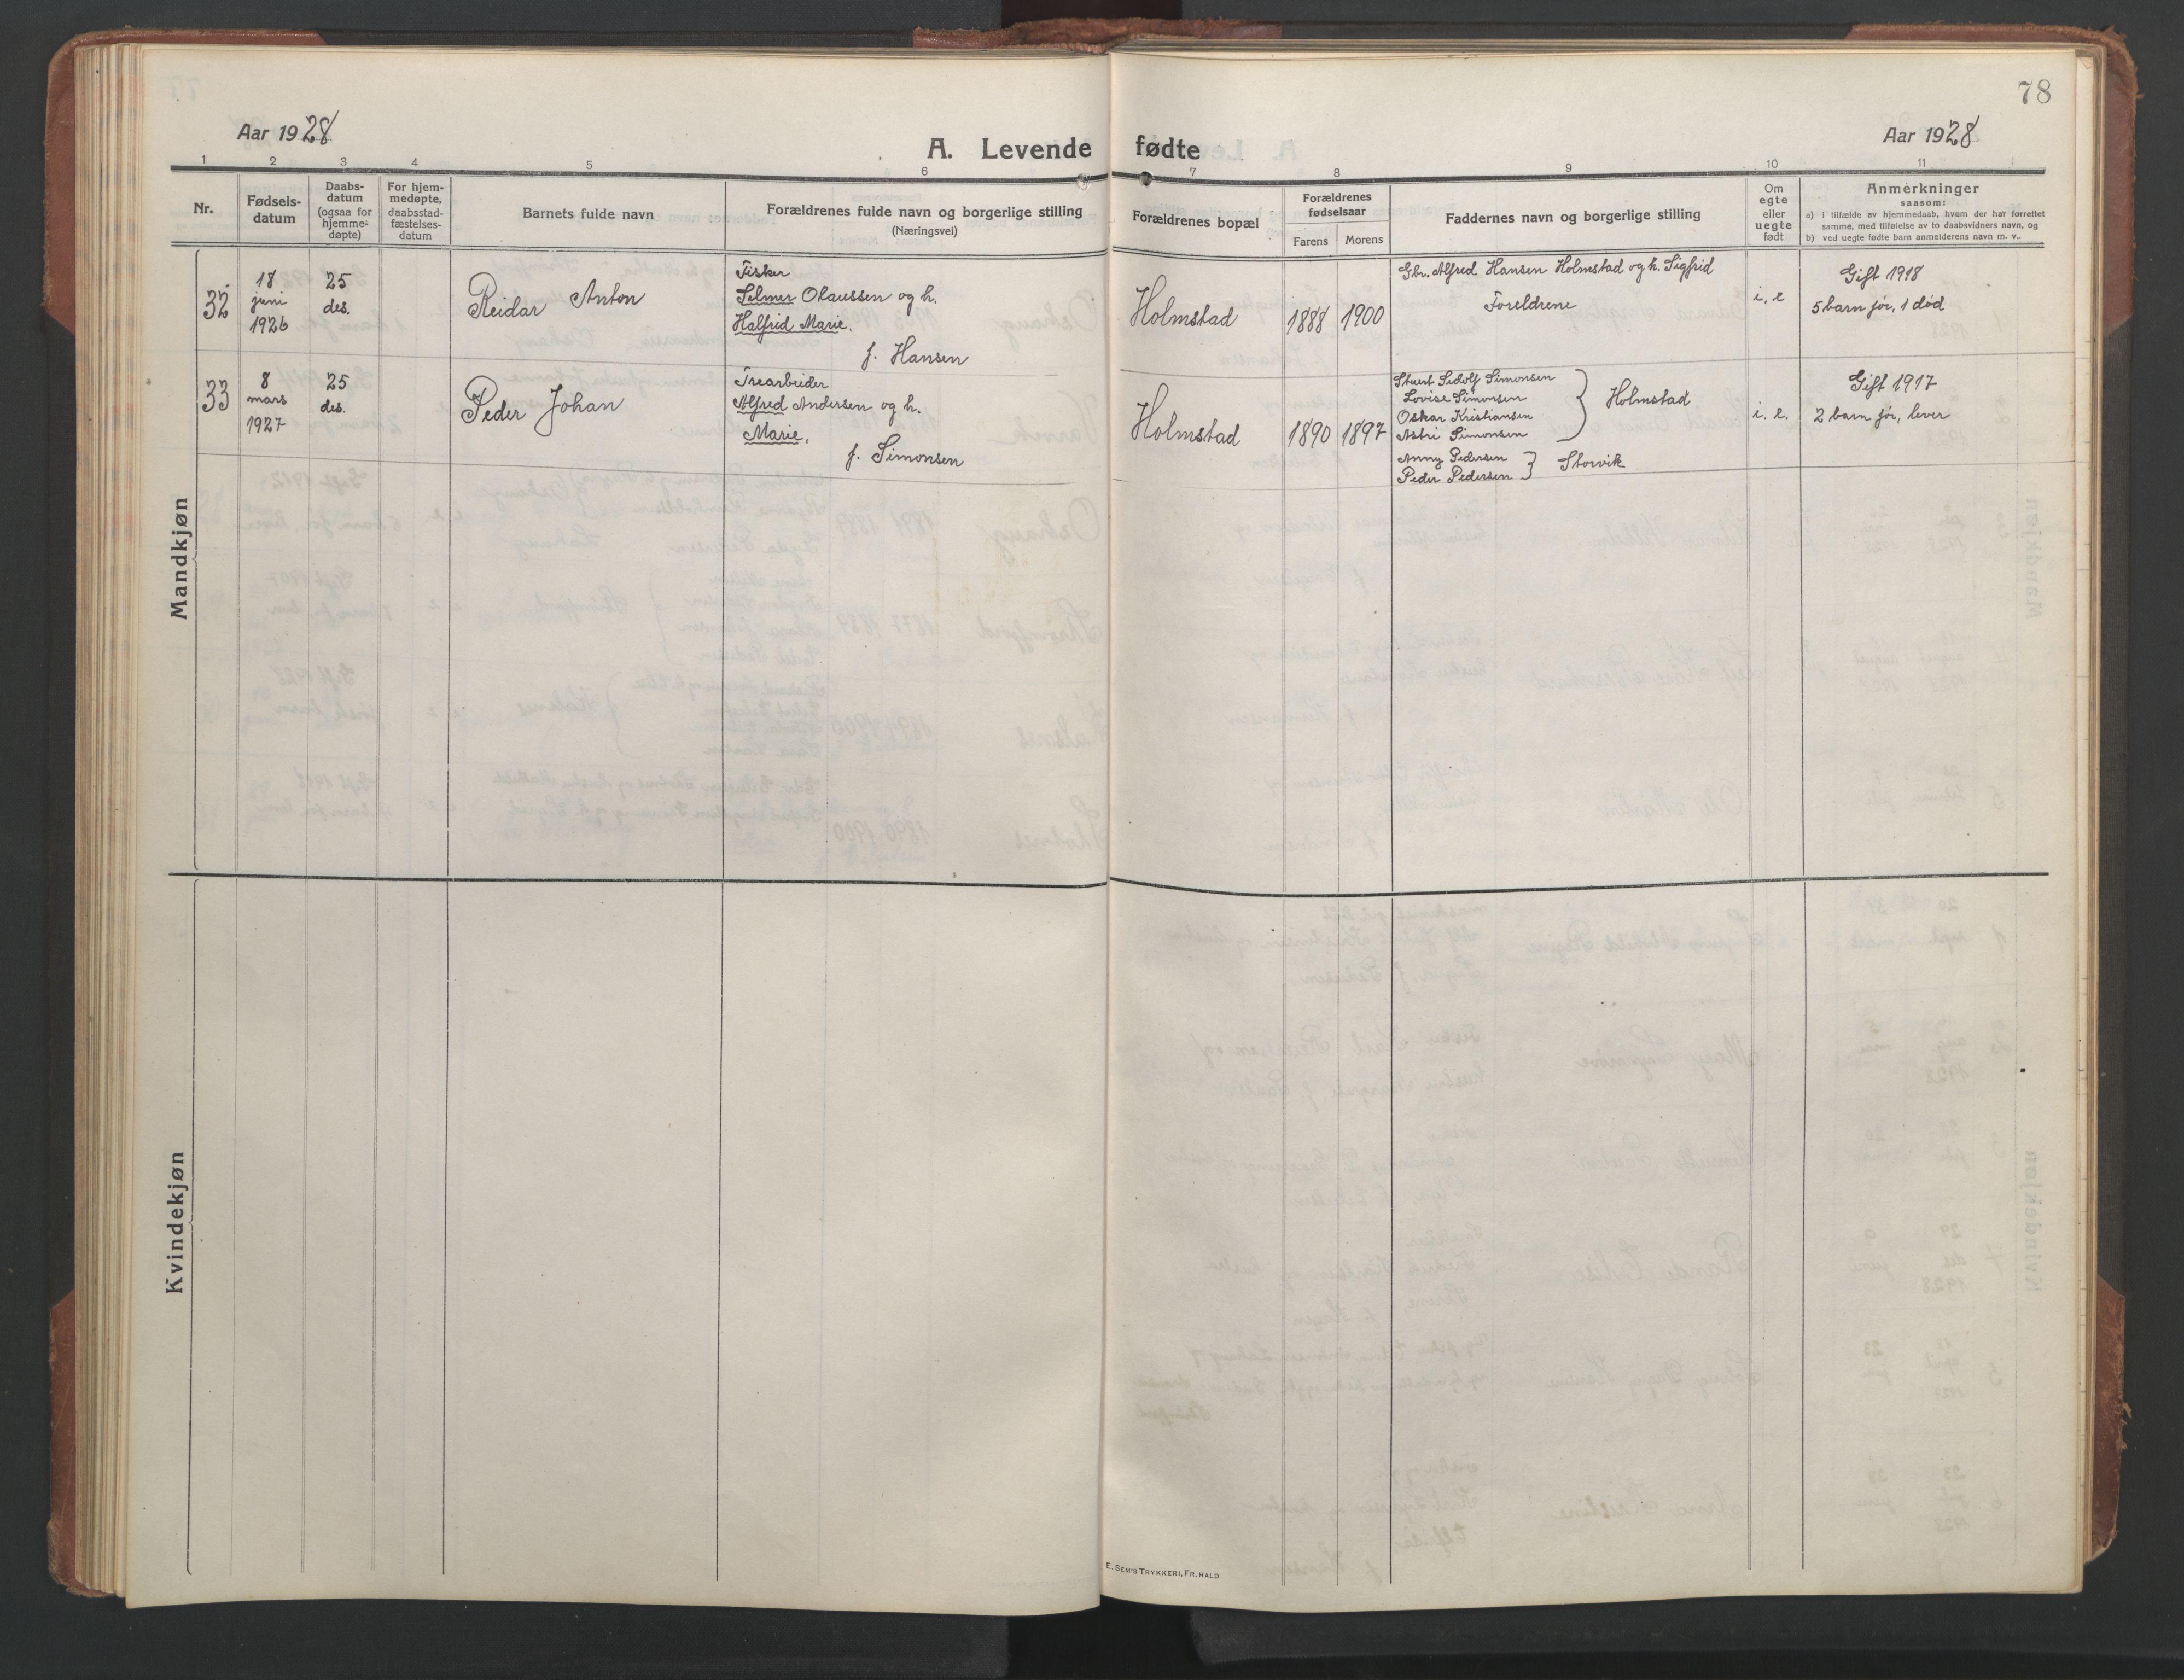 78
Aar 1928
A. Levende fødte
Aar 1928
1 2 3 4 5 6 7 8 9 10 11
Nr.
Fødsels-
datum
Daabs-
datum
(ogsaa for
hjemme-
døpte)
For hjem-
medøpte,
daabsstad-
fæstelses-
datum
Barnets fulde navn
Forældrenes fulde navn og borgerlige stilling
(Næringsvei)
Forældrenes bopæl
Forældrenes
fødselsaar
Farens
Morens
Faddernes navn og borgerlige stilling
Om
egte
eller
uegte
født
Anmerkninger
saasom:
a) I tilfælde av hjemmedaab, hvem der har forrettet
samme, med tilføielse av to daabsvidners navn, og
b) ved uegte fødte barn anmelderens navn m. v..
Mandkjøn
32
18
juni
1926
25
des.
Reidar Anton
Fisker
Selmer Olaussen og h.
Halfrid Marie,
f. Hansen
Holmstad
1888
1900
Gbr. Alfred Hansen Holmstad og h. Sigfrid
Foreldrene
i. e
Gift 1918
5 barn før, 1 død
33
8
mars
1927
25
des.
Peder Johan
Trearbeider
Alfred Andersen og h.
Marie,
f. Simonsen
Holmstad
1890
1897
Sidolf Simonsen
Lovise Simonsen
Oskar Kristiansen
Astri Simonsen
Holmstad
Anny Pedersen
Peder Pedersen
Storvik
i. e.
Gift 1917
2 barn før, lever
Kvindekjøn
E. SEM'S TRYKKERI, FR.HALD